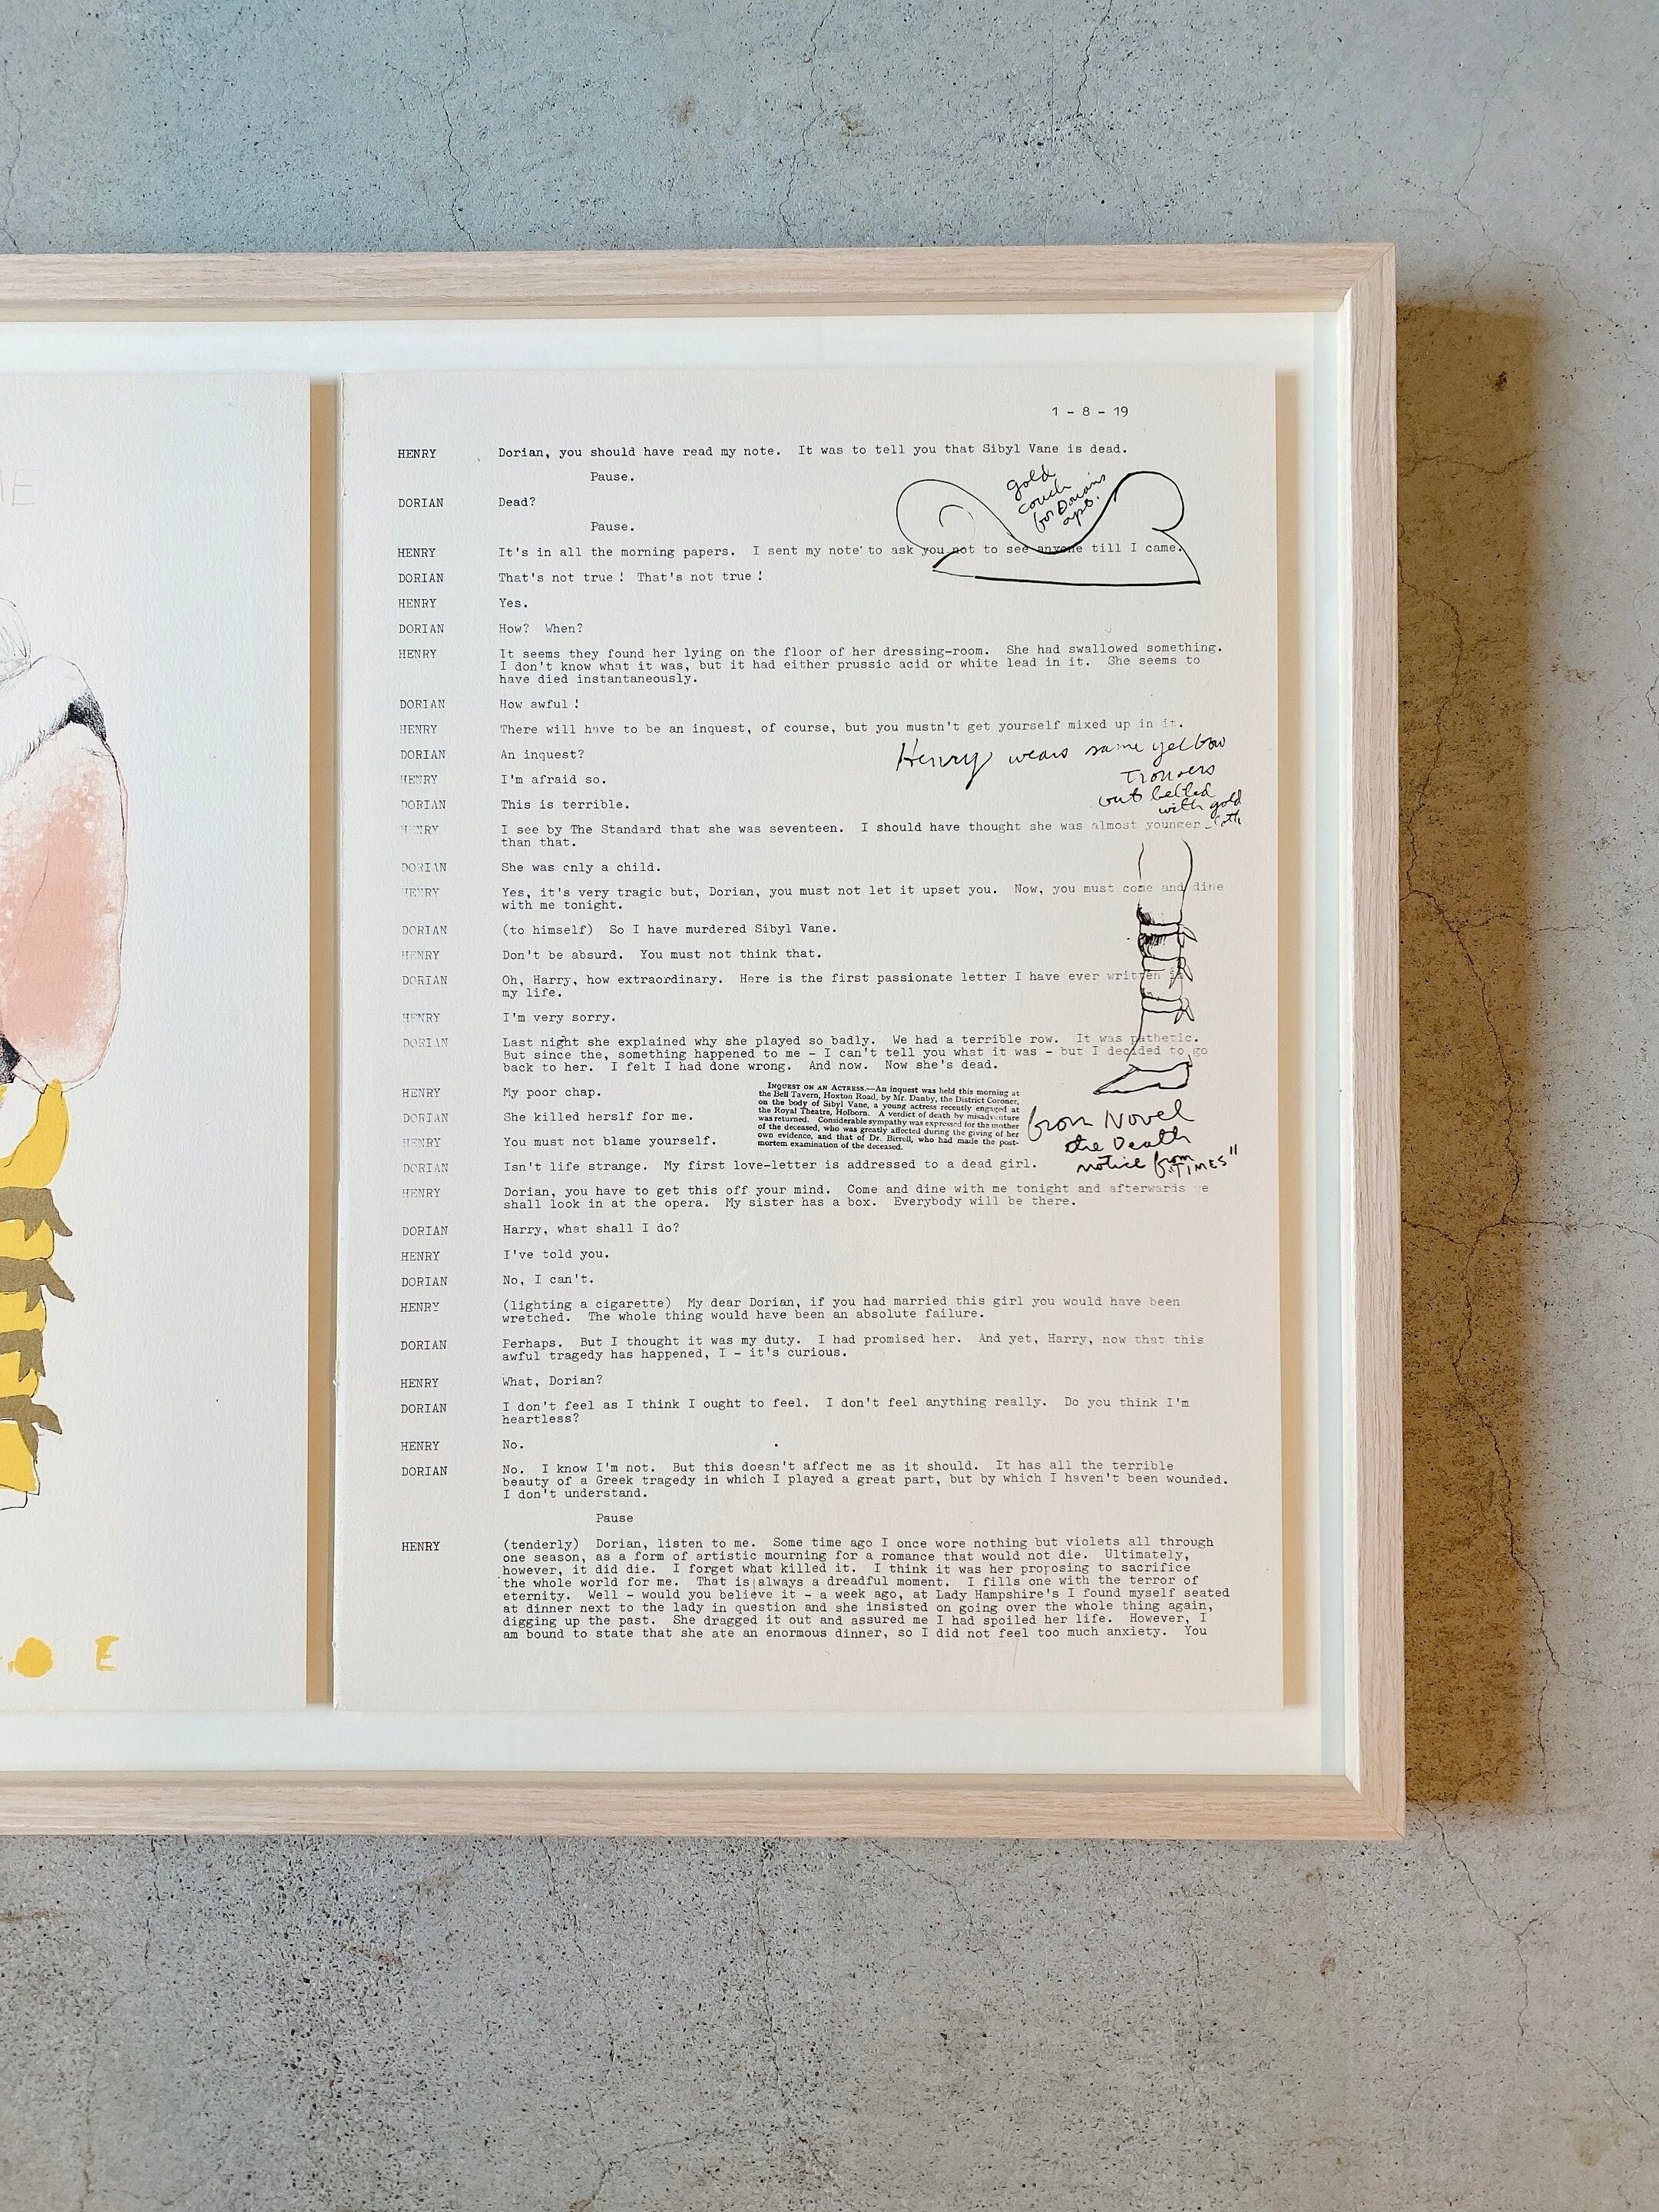 1 - 8 - 19
HENRY Dorian, you should have read my note. It was to tell you that Sibyl Vane is dead.
Pause.
gold
couch
for Dorians
apt.
DORIAN Dead?
Pause.
HENRY It's in all the morning papers. I sent my note to ask you not to see anyone till I came.
DORIAN That's not true! That's not true!
HENRY Yes.
DORIAN How? When?
HENRY It seems they found her lying on the floor of her dressing-room. She had swallowed something.
I don't know what it was, but it had either prussic acid or white lead in it. She seems to
have died instantaneously.
DORIAN How awful!
HENRY There will have to be an inquest, of course, but you mustn't get yourself mixed up in it.
DORIAN An inquest?
Henry wears same yellow
trousers
but belted
with gold
HENRY I'm afraid so.
DORIAN This is terrible.
HENRY I see by The Standard that she was seventeen. I should have thought she was almost younger
than that.
DORIAN She was only a child.
HENRY Yes, it's very tragic but, Dorian, you must not let it upset you. Now, you must come and dine
with me tonight.
DORIAN (to himself) So I have murdered Sibyl Vane.
HENRY Don't be absurd. You must not think that.
DORIAN Oh, Harry, how extraordinary. Here is the first passionate letter I have ever written in
my life.
HENRY I'm very sorry.
DORIAN Last night she explained why she played so badly. We had a terrible row. It was pathetic.
But since the, something happened to me - I can't tell you what it was - but I decided to go
back to her. I felt I had done wrong. And now. Now she's dead.
HENRY My poor chap.
DORIAN She killed herslf for me.
HENRY You must not blame yourself.
INQUEST ON AN ACTRESS.—An inquest was held this morning at
the Bell Tavern, Hoxton Road, by Mr. Danby, the District Coroner,
on the body of Sibyl Vane, a young actress recently engaged at
the Royal Theatre, Holborn. A verdict of death by misadventure
was returned. Considerable sympathy was expressed for the mother
of the deceased, who was greatly affected during the giving of her
own evidence, and that of Dr. Birrell, who had made the post-
mortem examination of the deceased.
from Novel
the Death
notice from
"TIMES"
DORIAN Isn't life strange. My first love-letter is addressed to a dead girl.
HENRY Dorian, you have to get this off your mind. Come and dine with me tonight and afterwards we
shall look in at the opera. My sister has a box. Everybody will be there.
DORIAN Harry, what shall I do?
HENRY I've told you.
DORIAN No, I can't.
HENRY (lighting a cigarette) My dear Dorian, if you had married this girl you would have been
wretched. The whole thing would have been an absolute failure.
DORIAN Perhaps. But I thought it was my duty. I had promised her. And yet, Harry, now that this
awful tragedy has happened, I - it's curious.
HENRY What, Dorian?
DORIAN I don't feel as I think I ought to feel. I don't feel anything really. Do you think I'm
heartless?
HENRY No.
DORIAN No. I know I'm not. But this doesn't affect me as it should. It has all the terrible
beauty of a Greek tragedy in which I played a great part, but by which I haven't been wounded.
I don't understand.
Pause
HENRY (tenderly) Dorian, listen to me. Some time ago I once wore nothing but violets all through
one season, as a form of artistic mourning for a romance that would not die. Ultimately,
however, it did die. I forget what killed it. I think it was her proposing to sacrifice
the whole world for me. That is always a dreadful moment. I fills one with the terror of
eternity. Well - would you believe it - a week ago, at Lady Hampshire's I found myself seated
at dinner next to the lady in question and she insisted on going over the whole thing again,
digging up the past. She dragged it out and assured me I had spoiled her life. However, I
am bound to state that she ate an enormous dinner, so I did not feel too much anxiety. You
E